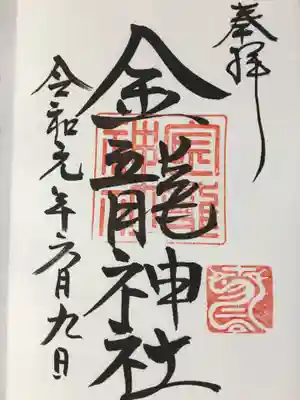 奉拝
金龍神社
令和元年六月九日